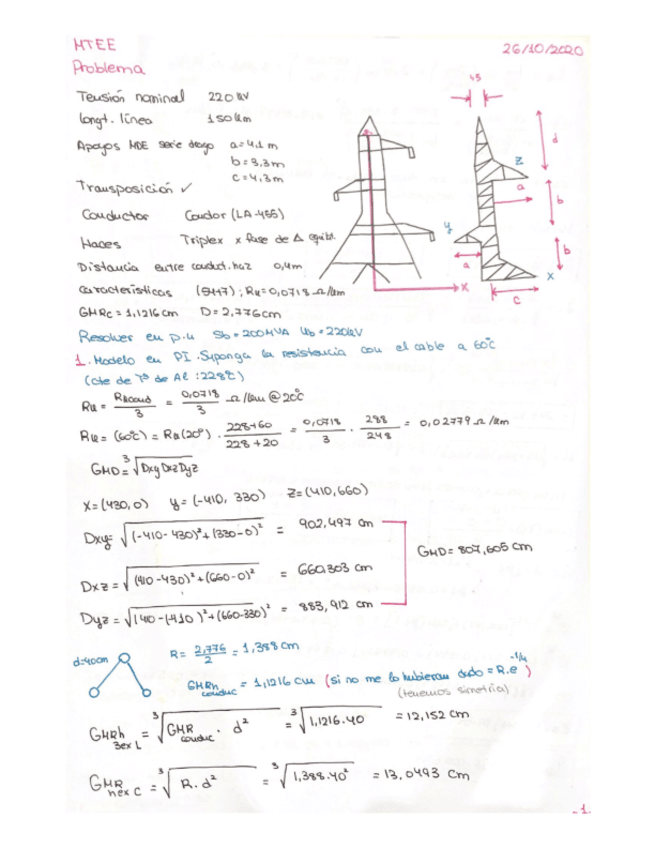 MTEE
26/10/2020
Problema
Tensión nominal 220 kV
longt. línea 150 km
Apoyos MDE serie drago a=4,1 m
b=3,3m
c=4,3m
Transposición ✓
Conductor Condor (LA-455)
Haces Triplex x fase de Δ equilt.
Distancia entre conduct. haz 0,4m
Características (54+7); Rk=0,0718 Ω/km
GMRc=1,1216cm D=2,776cm
45
d
z
a
b
y
b
a
x
c
x
Resolver en p.u Sb=200MVA Ub=220kV
1. Modelo en PI. Suponga la resistencia con el cable a 60°C
(cte de Tª de Al: 228°C)
Rk = Rkcond/3 = 0,0718/3 Ω/km @ 20°C
Rk = (60°C) = Rk(20°) · 228+60/228+20 = 0,0718/3 · 288/248 = 0,02779 Ω/km
GMD = ∛Dxy Dxz Dyz
x=(430,0) y=(-410, 330) z=(410,660)
Dxy = √(-410-430)²+(330-0)² = 902,497 cm
GMD= 807,605 cm
Dxz = √(410-430)²+(660-0)² = 660,303 cm
Dyz = √(410-(-410)²+(660-330)² = 883,912 cm
d=40cm
R = 2,776/2 = 1,388 cm
GMRh conduc = 1,1216 cm (si no me lo hubieran dado = R.e^-1/4)
(tenemos simetría)
GMRh 3ex L = ∛GMR conduc · d² = ∛1,1216.40 = 12,152 cm
GMR hex C = ∛R.d² = ∛1,388.40² = 13,0493 cm
-1.